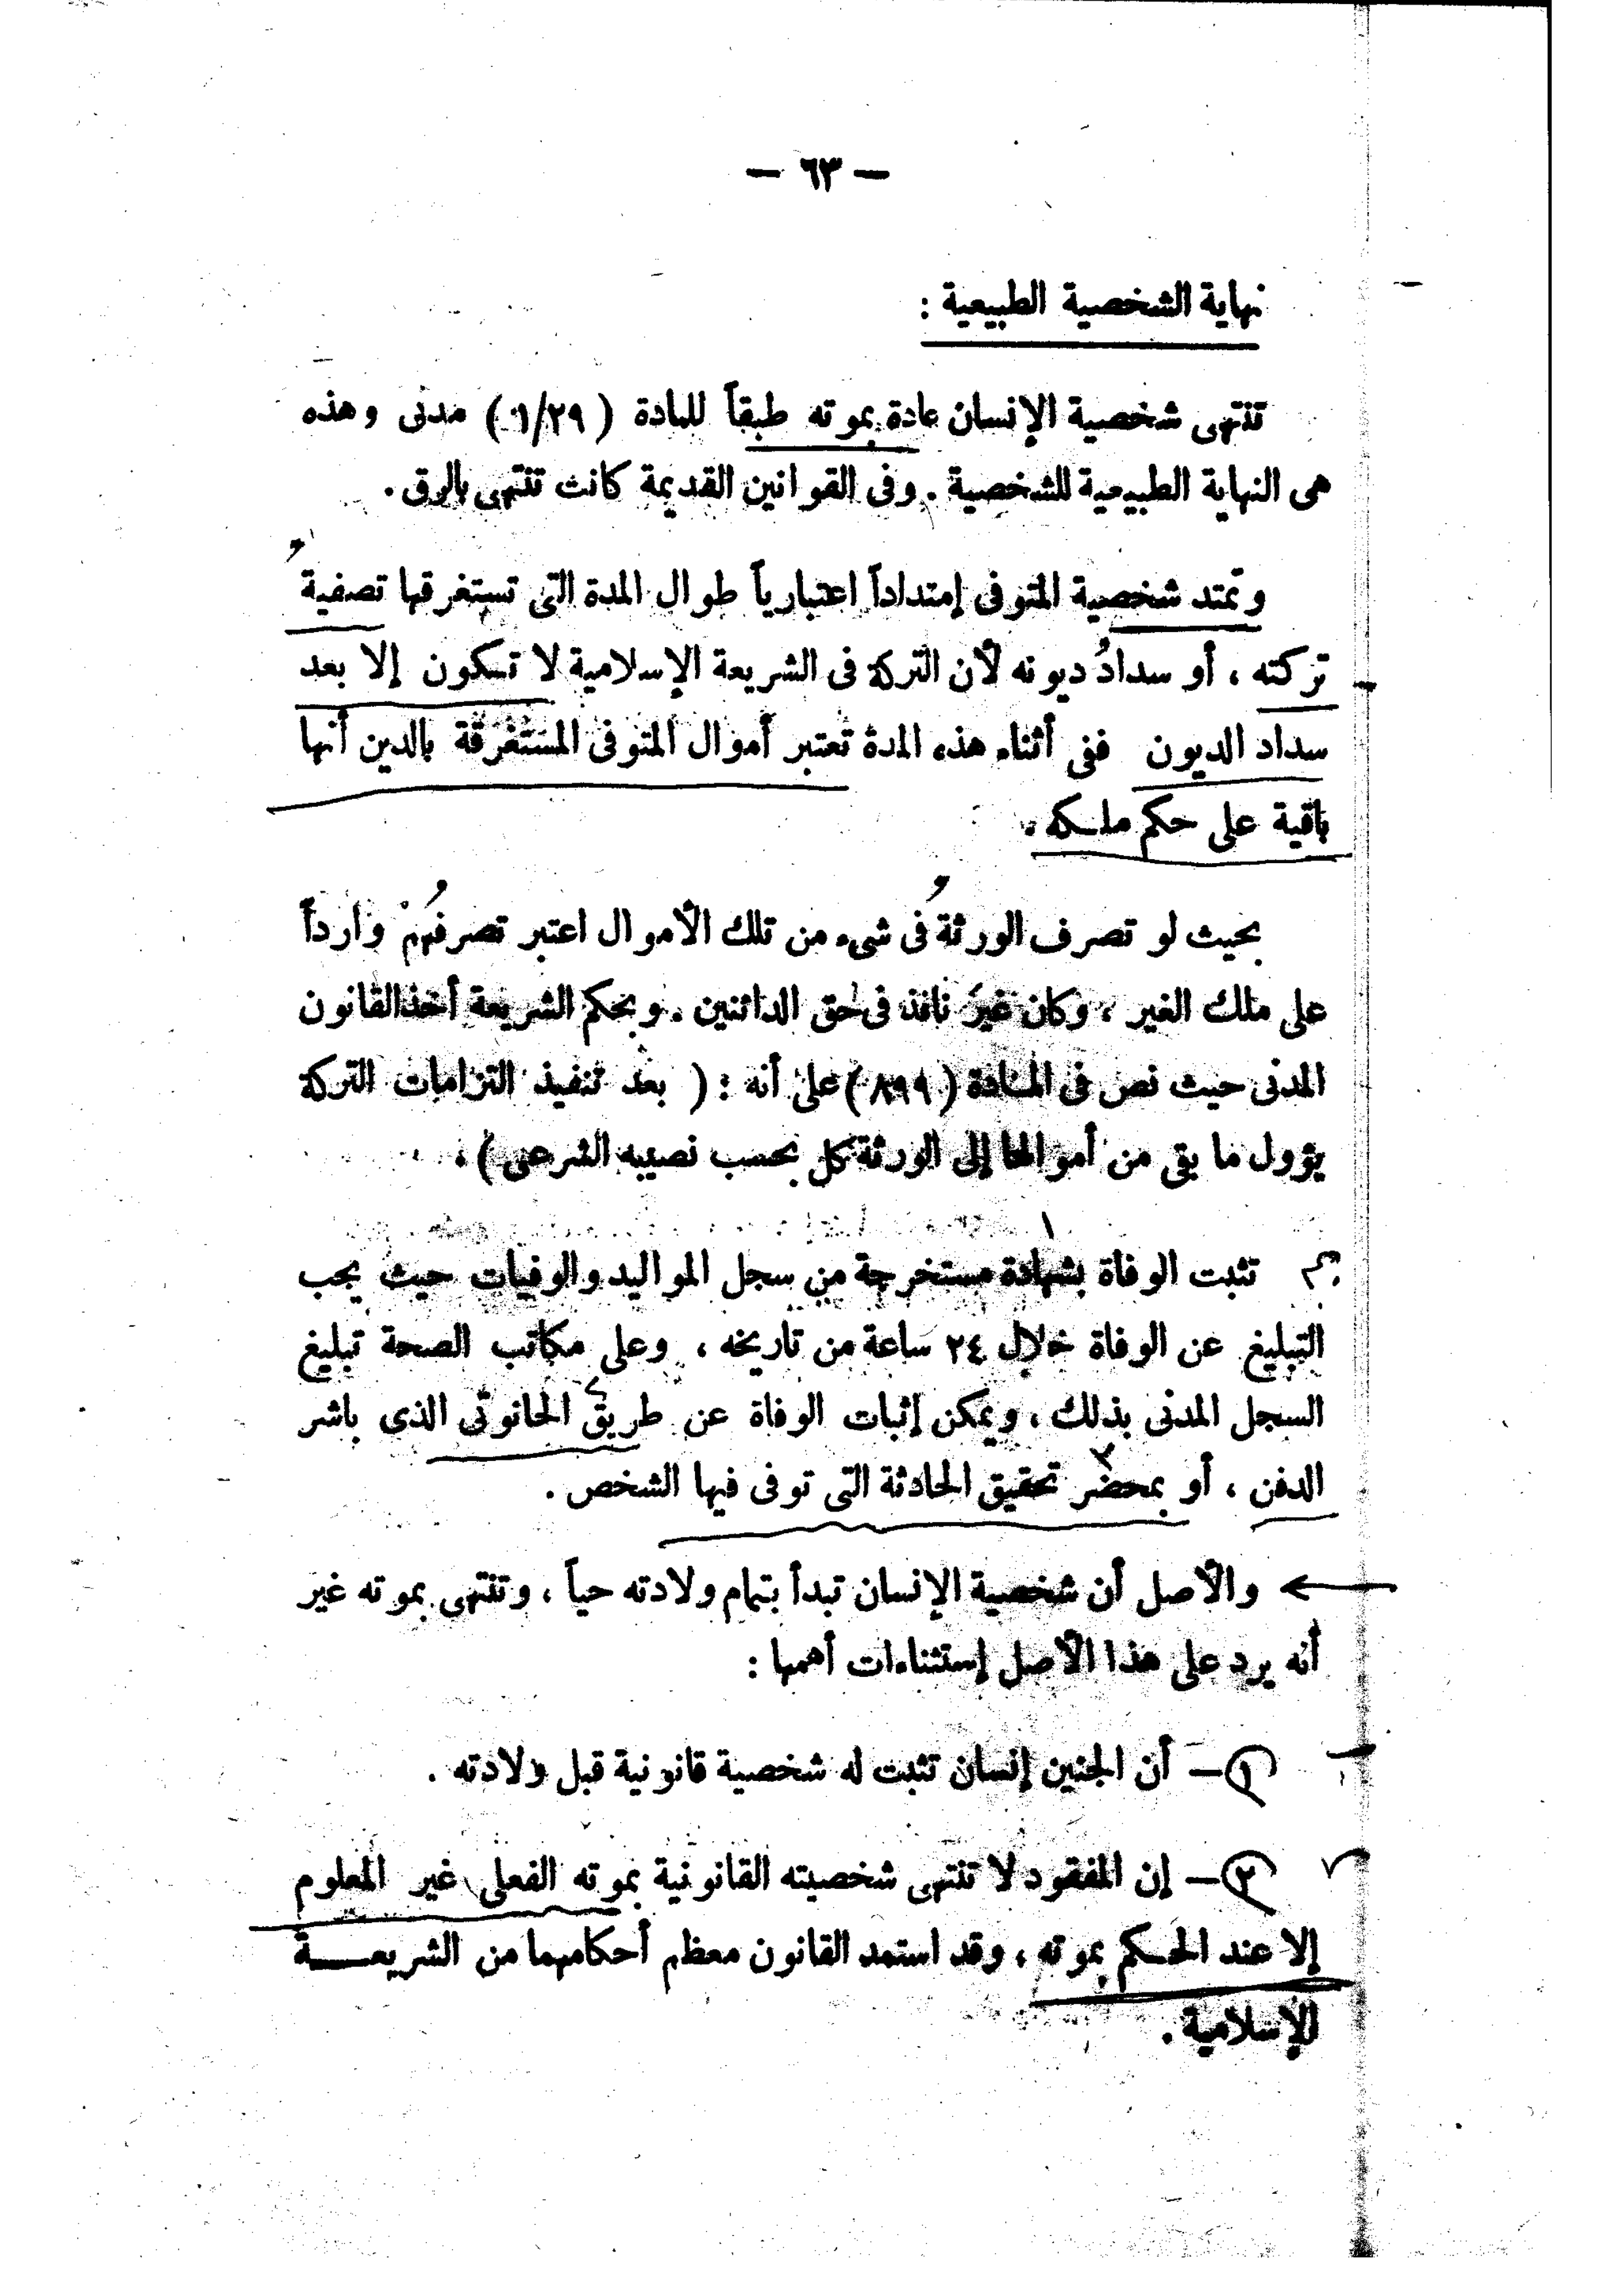 — ٦٣ —
نهاية الشخصية الطبيعية :
تنتهى شخصية الإنسان عادة بموته طبقاً للمادة ( ١/٢٩ ) مدنى وهذه
هى النهاية الطبيعية للشخصية . وفى القوانين القديمة كانت تنتهى بالرق .
وتمتد شخصية المتوفى إمتداداً اعتبارياً طوال المدة التى تستغرقها تصفية
تركته ، أو سداد ديونه لأن التركة فى الشريعة الإسلامية لا تكون إلا بعد
سداد الديون ففى أثناء هذه المدة تعتبر أموال المتوفى المستغرقة بالدين أنها
باقية على حكم ملكه .
بحيث لو تصرف الورثة فى شىء من تلك الأموال اعتبر تصرفهم وارداً
على ملك الغير ، وكان غير نافذ فى حق الدائنين . وبحكم الشريعة أخذ القانون
المدنى حيث نص فى المادة ( ٨٩٩ ) على أنه : ( بعد تنفيذ التزامات التركة
يؤول ما بقى من أموالها إلى الورثة كل بحسب نصيبه الشرعى ) .
تثبت الوفاة بشهادة مستخرجة من سجل المواليد والوفيات حيث يجب
التبليغ عن الوفاة خلال ٢٤ ساعة من تاريخه ، وعلى مكاتب الصحة تبليغ
السجل المدنى بذلك ، ويمكن إثبات الوفاة عن طريق الحانوتى الذى باشر
الدفن ، أو بمحضر تحقيق الحادثة التى توفى فيها الشخص .
والأصل أن شخصية الإنسان تبدأ بتمام ولادته حياً ، وتنتهى بموته غير
أنه يرد على هذا الأصل إستثناءات أهمها :
١ — أن الجنين إنسان تثبت له شخصية قانونية قبل ولادته .
٢ — إن المفقود لا تنتهى شخصيته القانونية بموته الفعلى غير المعلوم
إلا عند الحكم بموته ، وقد استمد القانون معظم أحكامهما من الشريعة
الإسلامية .